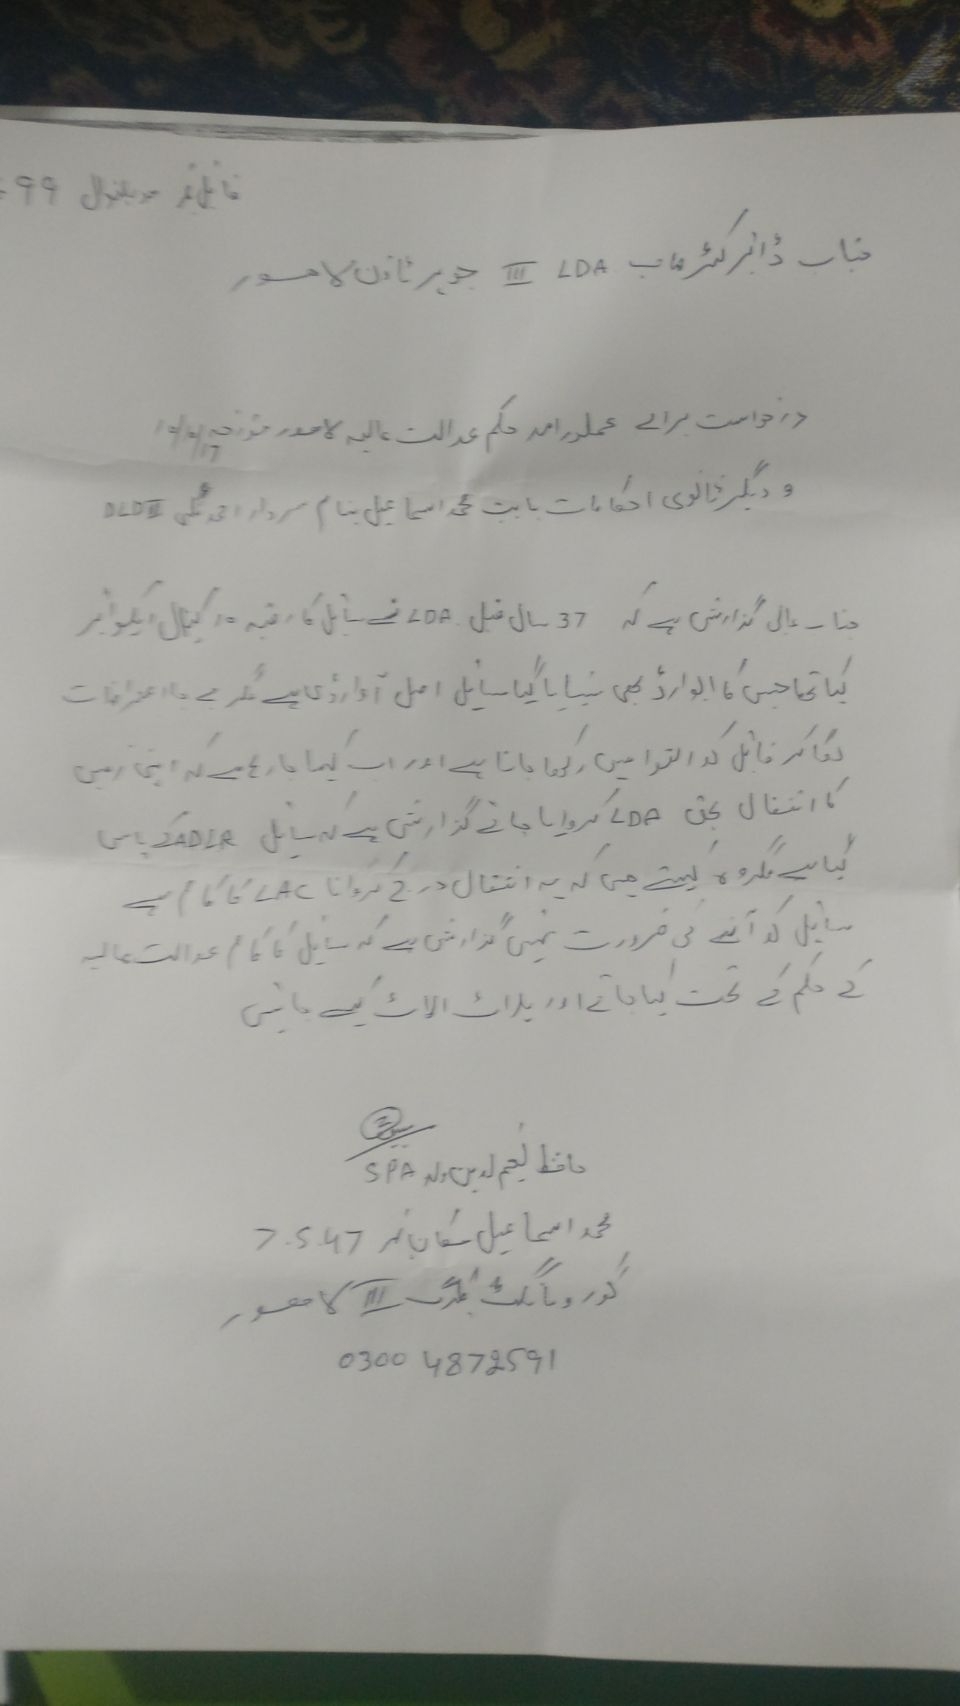 فائل نمبر موہلنوال 99
جناب ڈائریکٹر صاحب LDA III جوہر ٹاؤن لاہور
درخواست برائے عملدرامد حکم عدالت عالیہ لاہور مورخہ
و دیگر قانونی احکامات بابت محمد اسماعیل بنام سردار احمد علی DLD II
جناب عالی گذارش ہے کہ 37 سال قبل LDA نے سائل کا رقبہ 10 کینال ایکوائیر
کیا تھا جس کا ایوارڈ بھی سنایا گیا سائل اصل آوارڈی ہے مگر بے جا اعتراضات
لگا کر فائل کو التوا میں رکھا جاتا ہے اور اب کہا جا رہا ہے کہ اپنی زمین
کا انتقال بحق LDA کروایا جائے گذارش ہے کہ سائل ADLR کے پاس
گیا ہے مگر وہ کہتے ہیں کہ یہ انتقال درج کروانا LAC کا کام ہے
سائل کو آنے کی ضرورت نہیں گذارش ہے کہ سائل کا کام عدالت عالیہ
کے حکم کے تحت کیا جائے اور پلاٹ الاٹ کیے جائیں
حافظ نعیم الدین ولد SPA
محمد اسماعیل مکان نمبر 7.5.47
گورومانگٹ گلبرگ III لاہور
0300 4872591